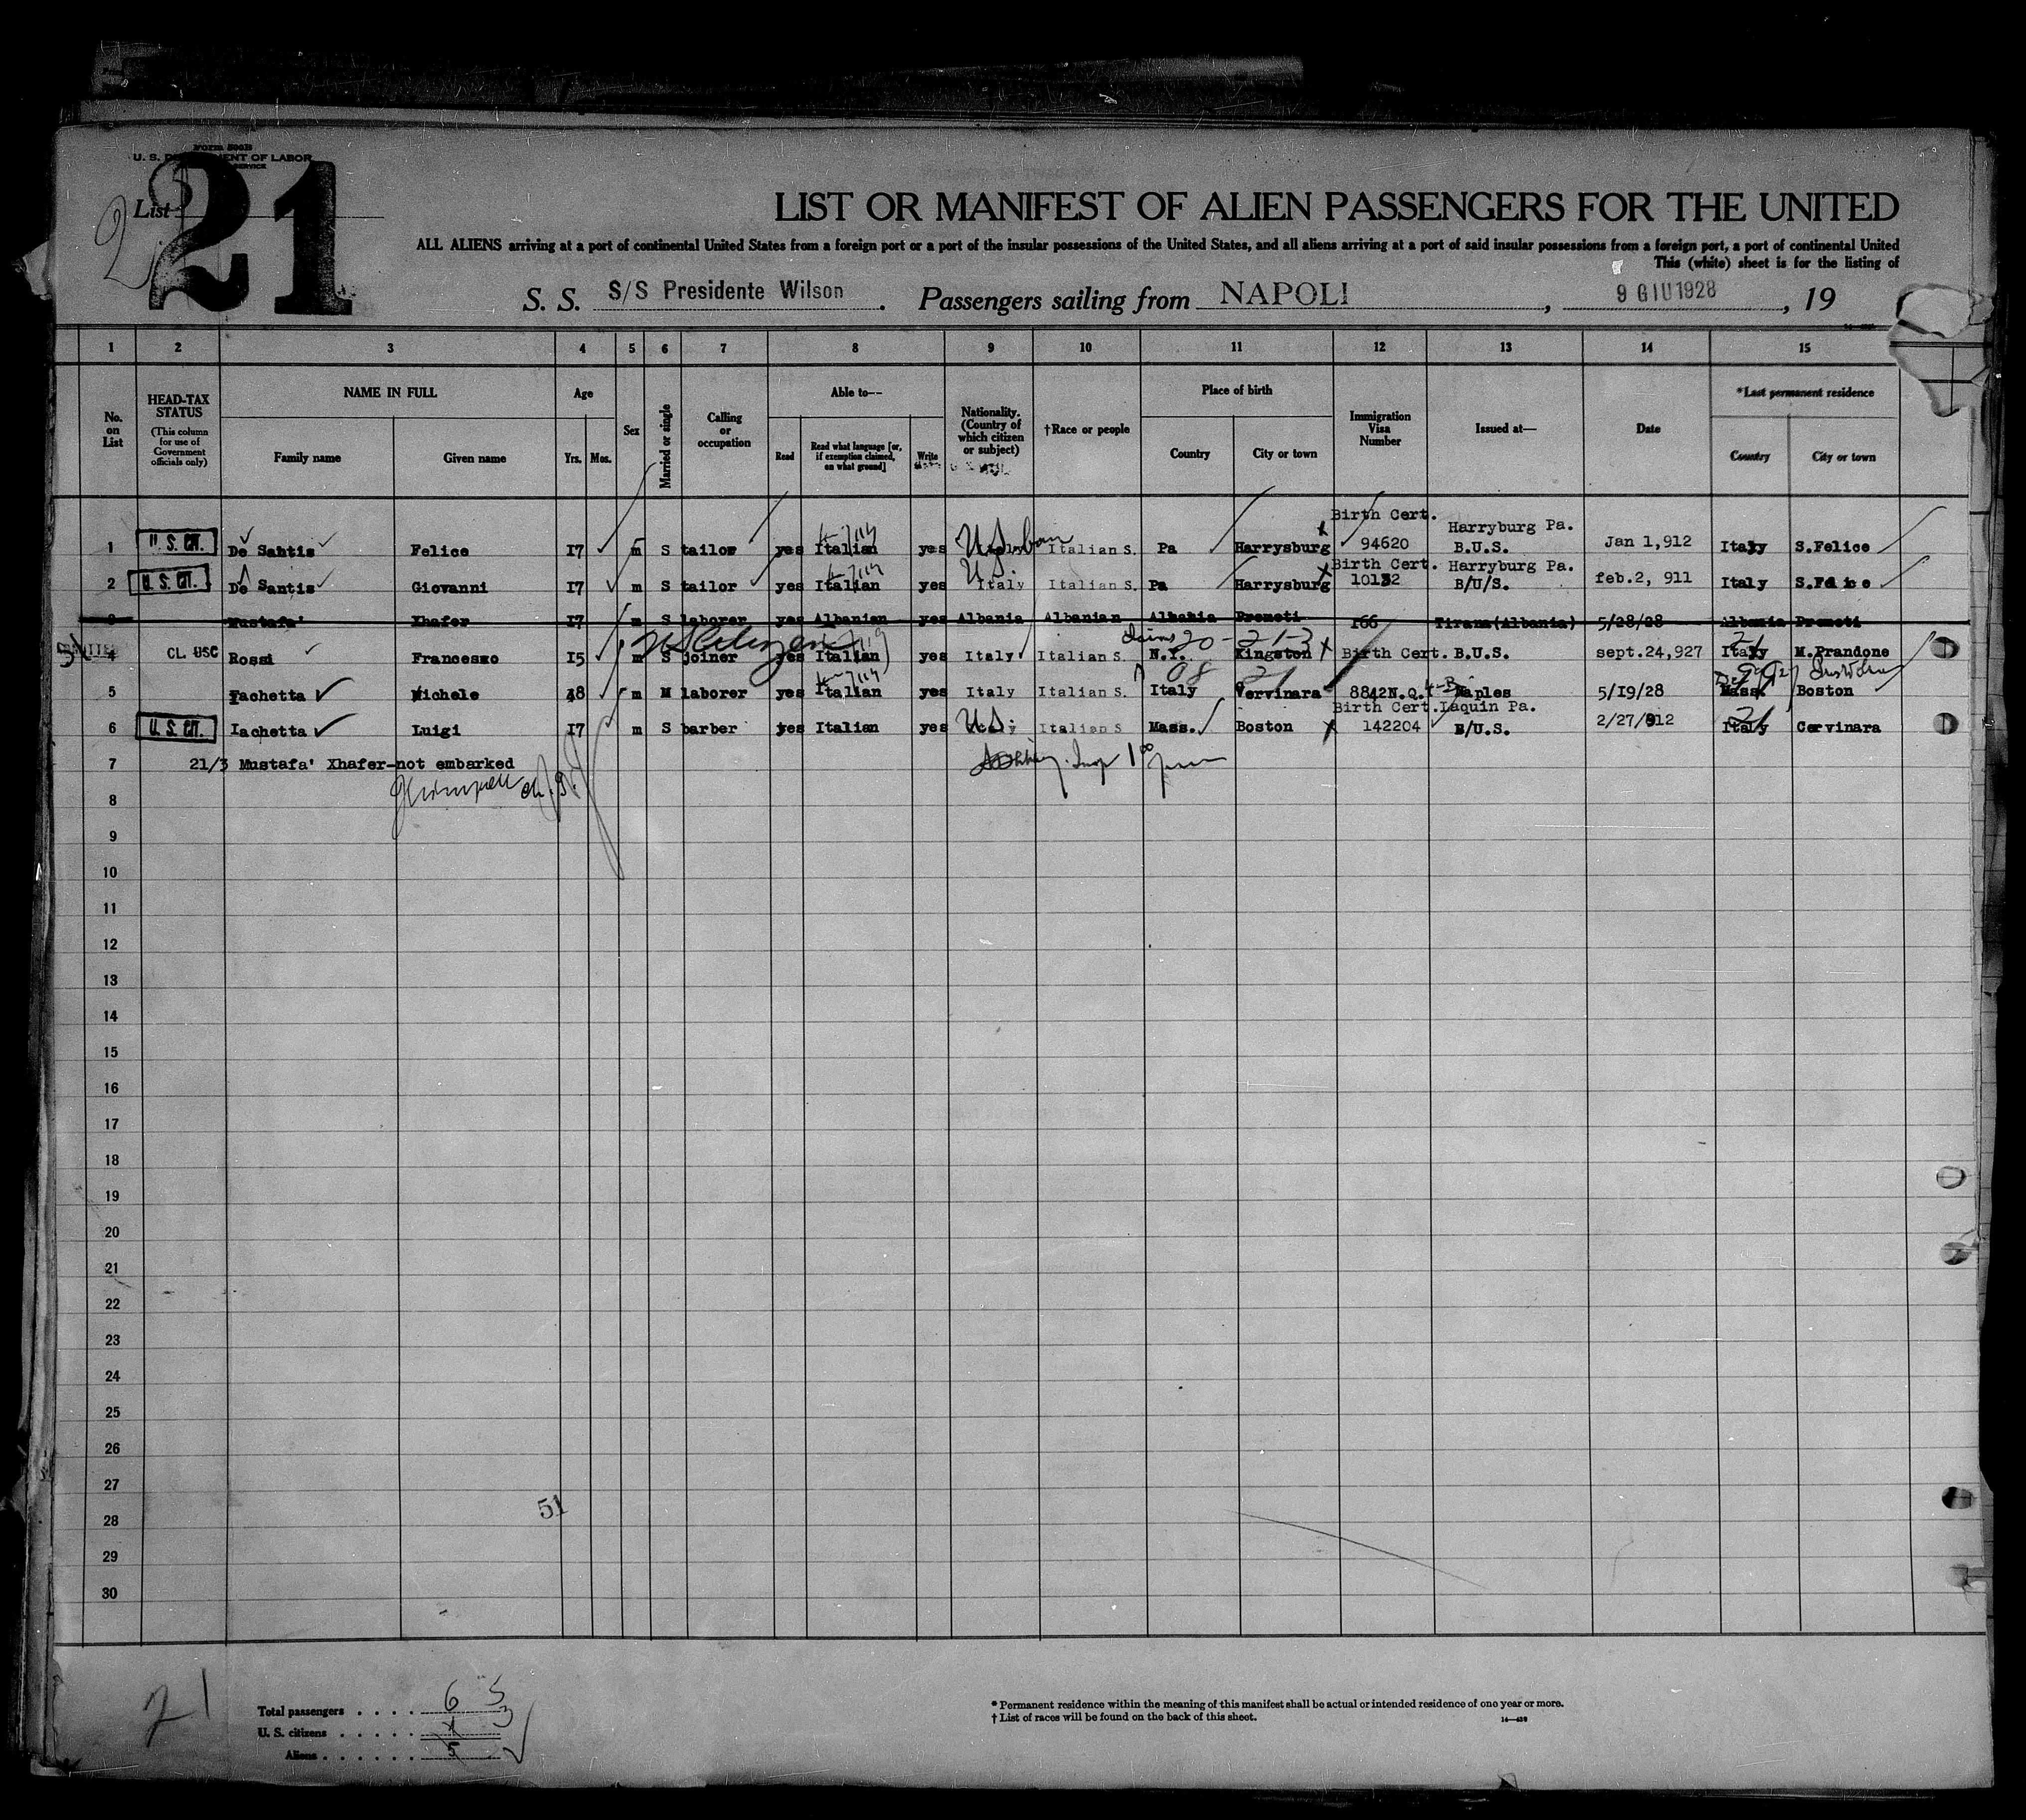 Form 500B
U. S. DEPARTMENT OF LABOR
List 21
LIST OR MANIFEST OF ALIEN PASSENGERS FOR THE UNITED
ALL ALIENS arriving at a port of continental United States from a foreign port or a port of the insular possessions of the United States, and all aliens arriving at a port of said insular possessions from a foreign port, a port of continental United
This (white) sheet is for the listing of
S. S. S/S Presidente Wilson . Passengers sailing from NAPOLI , 9 GIU 1928 , 19
1 2 3 4 5 6 7 8 9 10 11 12 13 14 15
No. on List
HEAD-TAX STATUS (This column for use of Government officials only)
NAME IN FULL Family name Given name
Age Yrs. Mos.
Sex
Married or single
Calling or occupation
Able to— Read Read what language [or, if exemption claimed, on what ground] Write
Nationality. (Country of which citizen or subject)
†Race or people
Place of birth Country City or town
Immigration Visa Number
Issued at—
Date
*Last permanent residence Country City or town
Birth Cert. Harryburg Pa.
1 U. S. CIT. De Santis Felice 17 m S tailor yes Italian yes U.S. Italian S. Pa Harrysburg 94620 B.U.S. Jan 1,912 Italy S.Felice
Birth Cert. Harryburg Pa.
2 U. S. CIT. De Santis Giovanni 17 m S tailor yes Italian yes U.S. Italy Italian S. Pa Harrysburg 10132 B/U/S. feb.2, 911 Italy S.Felice
3 Mustafa' Xhafer 17 m S laborer yes Albanian yes Albania Albanian Albania Premeti 166 Tirana(Albania) 5/28/28 Albania Premeti
4 CL. USC Rossi Francesco 15 m S joiner yes Italian yes Italy Italian S. N.Y. Kingston Birth Cert. B.U.S. sept.24,927 Italy M.Prandone
US Citizen
5 Iachetta Michele 48 m M laborer yes Italian yes Italy Italian S. Italy Vervinara 8842N.Q. Naples 5/19/28 Mass. Boston
Birth Cert. Laquin Pa.
6 U. S. CIT. Iachetta Luigi 17 m S barber yes Italian yes U.S. Italy Italian S Mass. Boston 142204 B/U.S. 2/27/912 Italy Cervinara
7 21/3 Mustafa' Xhafer-not embarked
8
9
10
11
12
13
14
15
16
17
18
19
20
21
22
23
24
25
26
27
51
28
29
30
21
Total passengers . . . . 6 5
U. S. citizens . . . . . 3
Aliens . . . . . . 5
* Permanent residence within the meaning of this manifest shall be actual or intended residence of one year or more.
† List of races will be found on the back of this sheet.